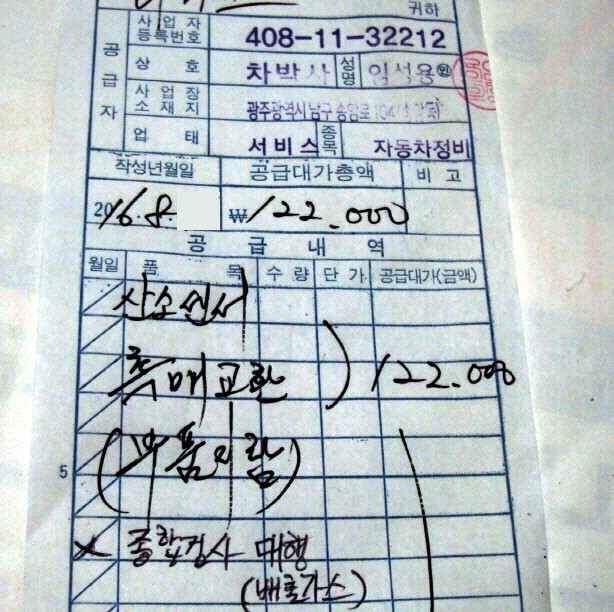 귀하
공급자
사업자 등록번호 408-11-32212
상 호 차박사 성명 임석용 ㊞
사업장 소재지 광주광역시 남구 송암로
업 태 서비스 종목 자동차정비
작성년월일 공급대가총액 비고
2016.8. ₩122.000
공 급 내 역
월일 품 목 수량 단가 공급대가(금액)
산소센서
촉매교환 ) 122.000
5
종합검사 대행
(배출가스)